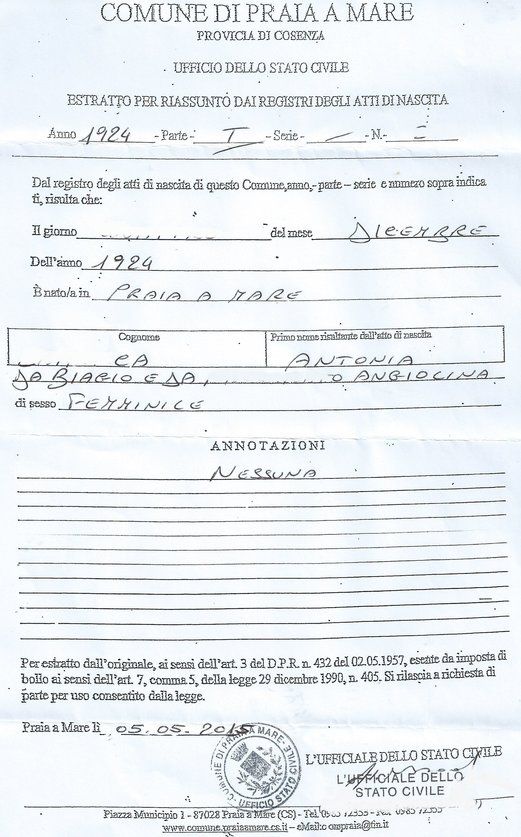 COMUNE DI PRAIA A MARE
PROVICIA DI COSENZA
UFFICIO DELLO STATO CIVILE
ESTRATTO PER RIASSUNTO DAI REGISTRI DEGLI ATTI DI NASCITA
Anno 1924 - Parte - I - Serie - - N.-
Dal registro degli atti di nascita di questo Comune,anno,- parte – serie e numero sopra indica
ti, risulta che:
Il giorno del mese DICEMBRE
Dell'anno 1924
È nato/a in PRAIA A MARE
Cognome Primo nome risultante dall'atto di nascita
CA ANTONIA
DA BIAGIO E DA O ANGIOLINA
di sesso FEMMINILE
ANNOTAZIONI
NESSUNA
Per estratto dall'originale, ai sensi dell'art. 3 del D.P.R. n. 432 del 02.05.1957, esente da imposta di
bollo ai sensi dell'art. 7, comma 5, della legge 29 dicembre 1990, n. 405. Si rilascia a richiesta di
parte per uso consentito dalla legge.
Praia a Mare lì 05.05.2015
COMUNE DI PRAIA A MARE
UFFICIO STATO CIVILE
L'UFFICIALE DELLO STATO CIVILE
L'UFFICIALE DELLO
STATO CIVILE
Piazza Municipio 1 - 87028 Praia a Mare (CS) - Tel.
www.comune.praiaamare.cs.it – eMail: